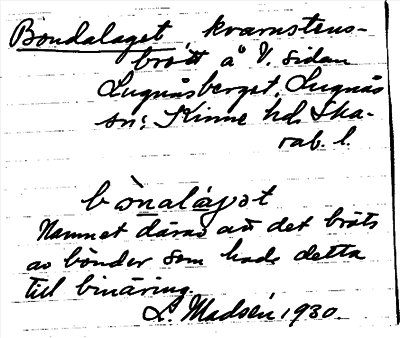 Bondalaget, kvarnstens-
brott å V. sidan
Lugnåsberget, Lugnås
sn; Kinne hd, Ska-
rab. l.
bònalágət
Namnet därav att det bröts
av bönder som hade detta
till binäring.
L. Madsén 1930.